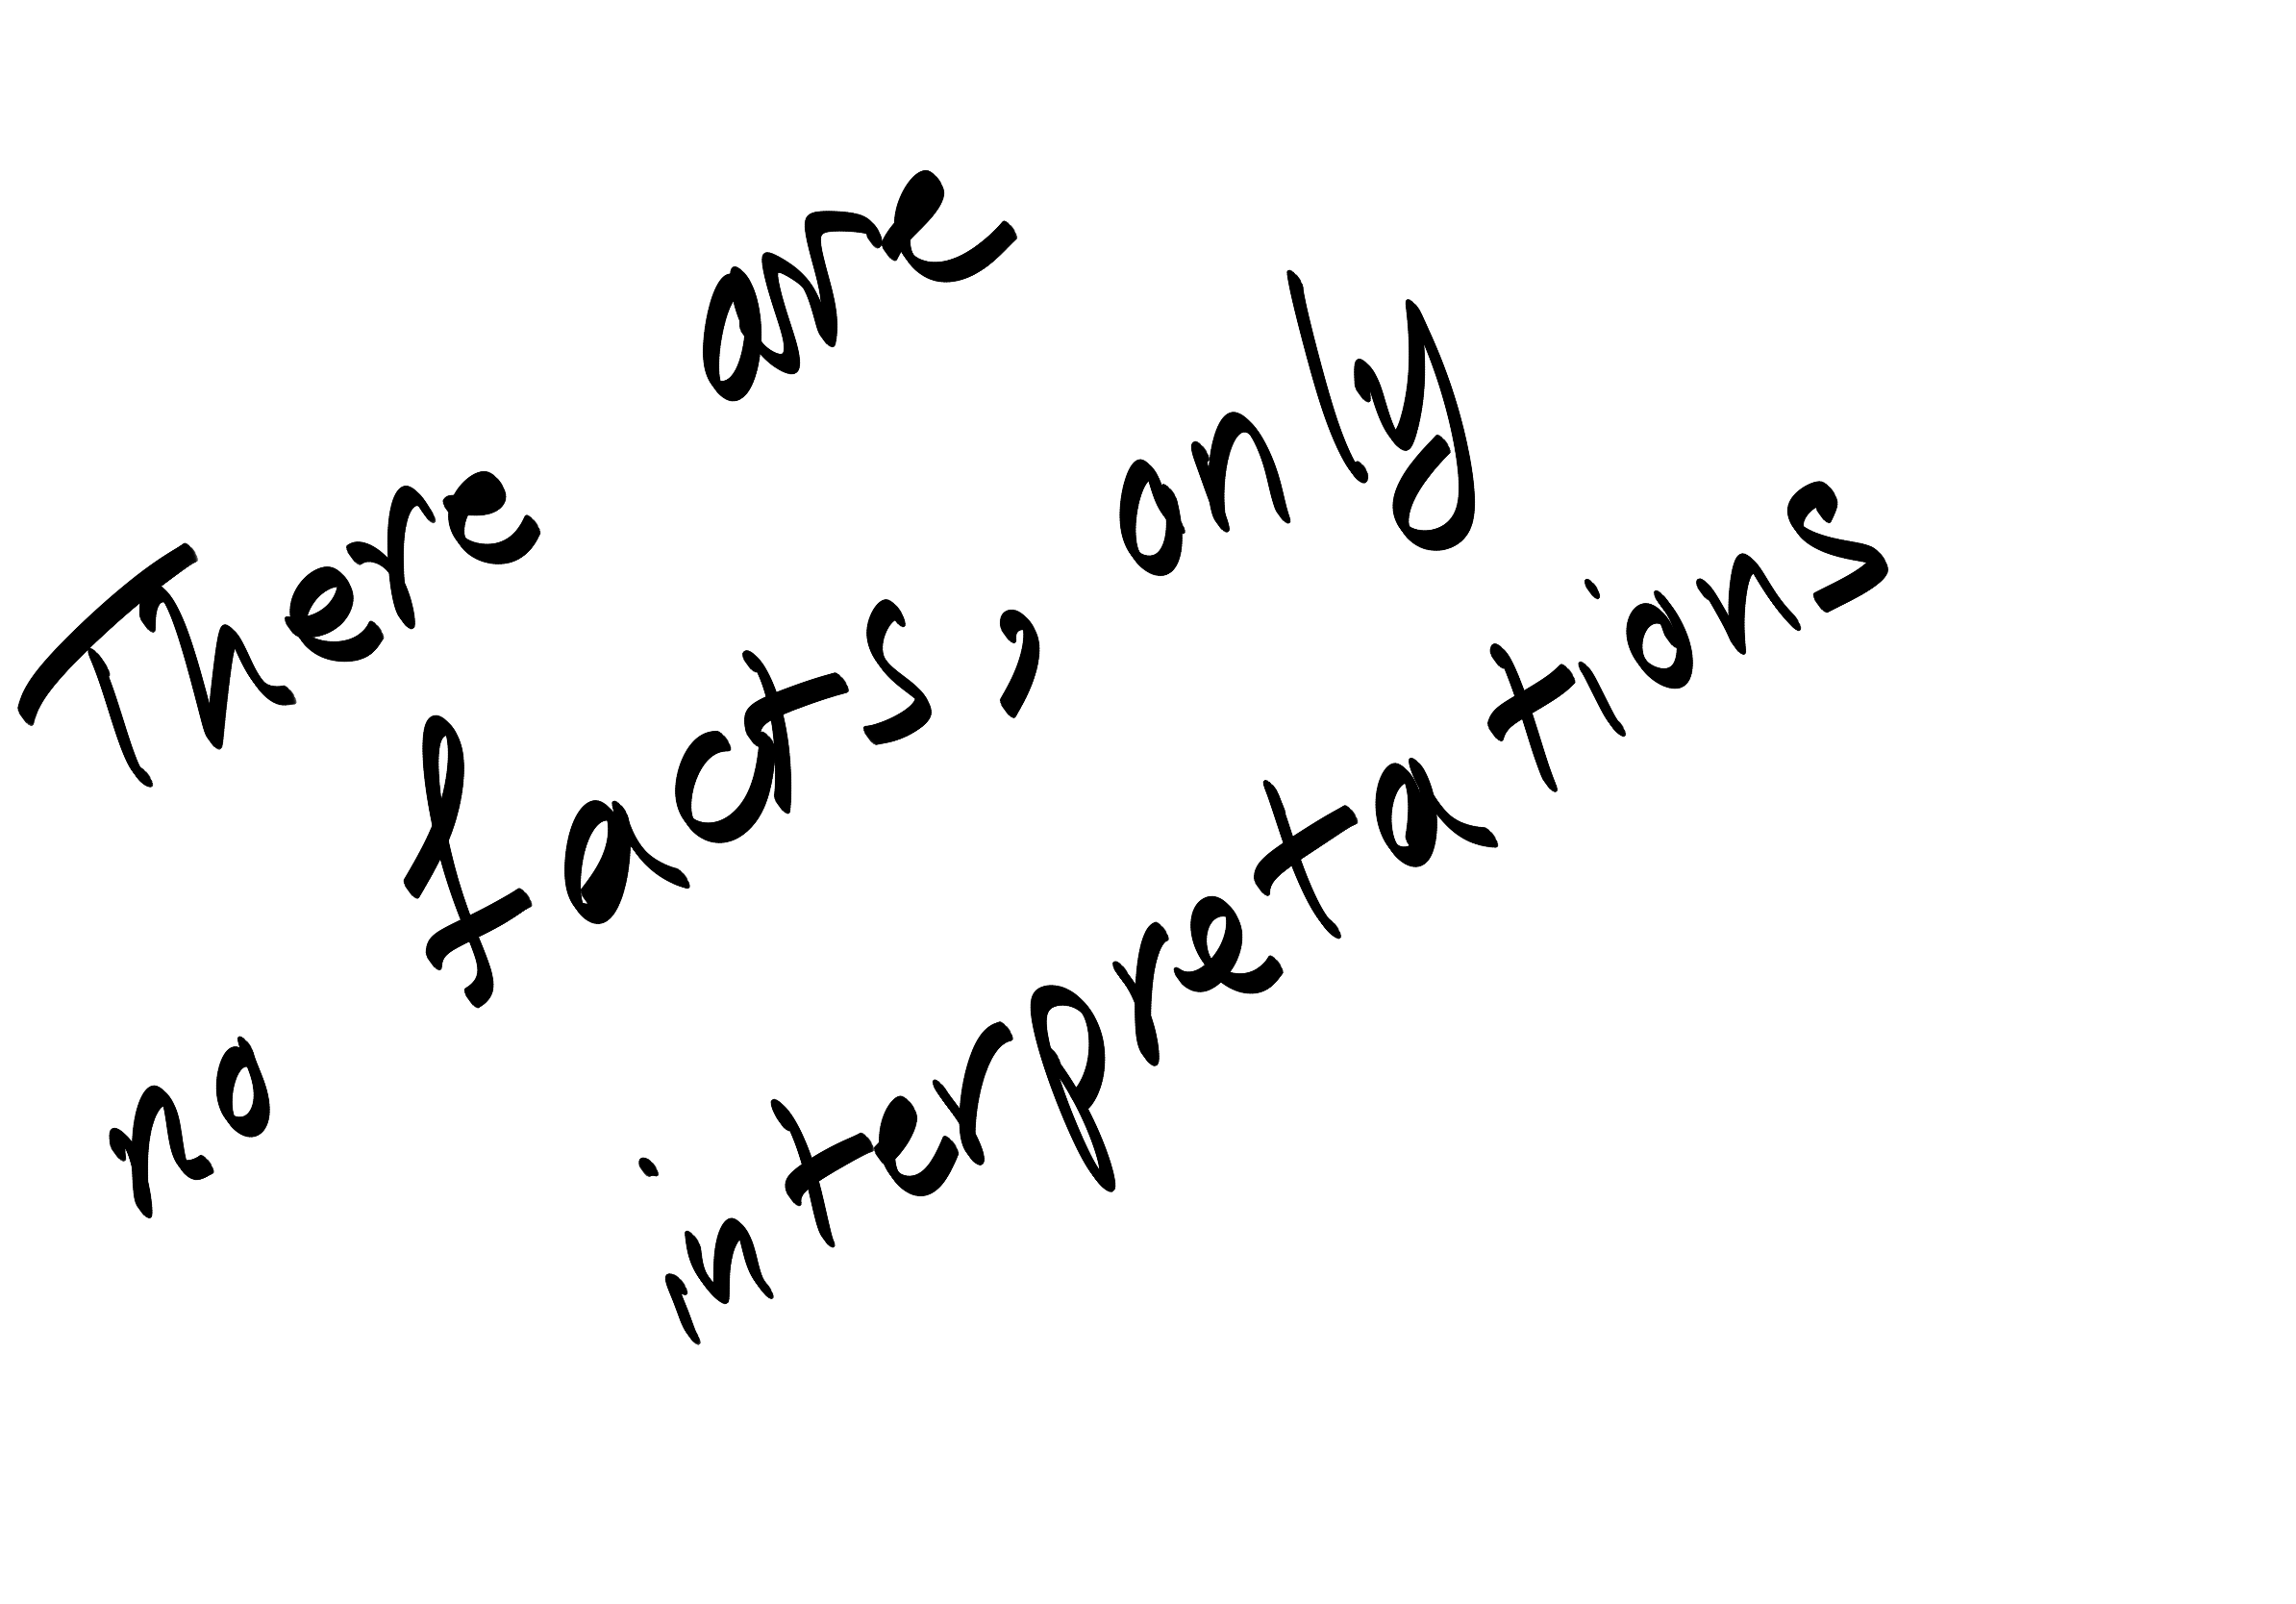 There are
no facts, only
interpretations